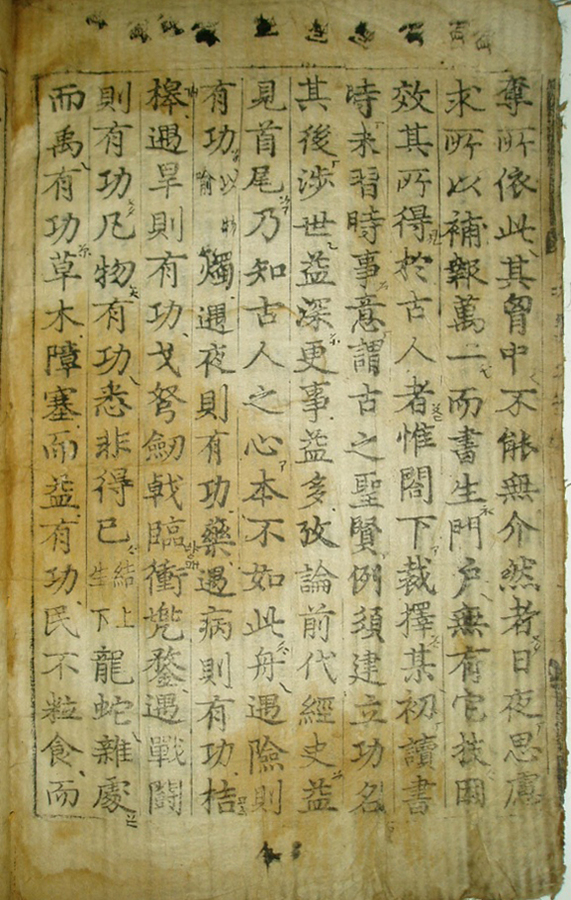 奪所依此其胷中不能無介然者日夜思慮
求所以補報萬一而書生門户無有它技因
效其所得於古人者惟閤下裁擇某初讀書
時未習時事意謂古之聖賢例須建立功名
其後涉世益深更事益多攷論前代經史益
見首尾乃知古人之心本不如此舟遇險則
有功以物喻燭遇夜則有功藥遇病則有功桔
槔遇旱則有功戈弩劒戟臨衝兠鍪遇戰鬪
則有功凡物有功悉非得已結上生下龍蛇雜處
而禹有功草木障塞而益有功民不粒食而